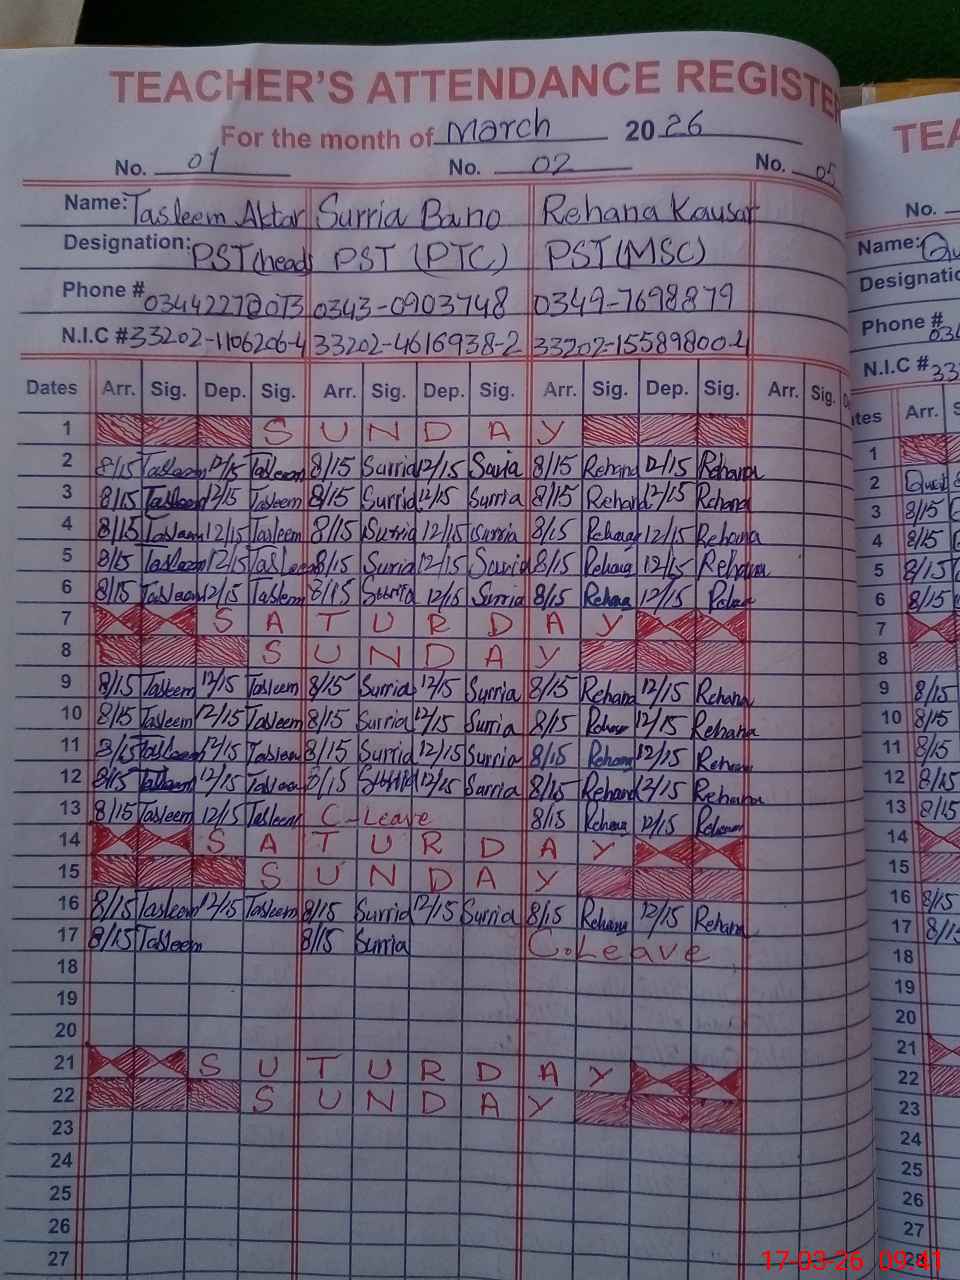 TEACHER'S ATTENDANCE REGISTER
For the month of March 2026
No. 01 No. 02 No. 05
Name: Tasleem Aktar Surria Bano Rehana Kausar
Designation: PST(head) PST (PTC) PST(MSC)
Phone # 0343-0903748 0349-7698879
N.I.C # 33202-1106206-4 33202-4616938-2 33202-15589800-4
Dates Arr. Sig. Dep. Sig. Arr. Sig. Dep. Sig. Arr. Sig. Dep. Sig. Arr. Sig.
1 SUNDAY
2 8/15 Tasleem 12/15 Tasleem 8/15 Surria 12/15 Surria 8/15 Rehana 12/15 Rehana
3 8/15 Tasleem 12/15 Tasleem 8/15 Surria 12/15 Surria 8/15 Rehana 12/15 Rehana
4 8/15 Tasleem 12/15 Tasleem 8/15 Surria 12/15 Surria 8/15 Rehana 12/15 Rehana
5 8/15 Tasleem 12/15 Tasleem 8/15 Surria 12/15 Surria 8/15 Rehana 12/15 Rehana
6 8/15 Tasleem 12/15 Tasleem 8/15 Surria 12/15 Surria 8/15 Rehana 12/15
7 SATURDAY
8 SUNDAY
9 8/15 Tasleem 12/15 Tasleem 8/15 Surria 12/15 Surria 8/15 Rehana 12/15 Rehana
10 8/15 Tasleem 12/15 Tasleem 8/15 Surria 12/15 Surria 8/15 Rehana 12/15 Rehana
11 8/15 Tasleem 12/15 Tasleem 8/15 Surria 12/15 Surria 8/15 Rehana 12/15 Rehana
12 8/15 Tasleem 12/15 Tasleem 8/15 Surria 12/15 Surria 8/15 Rehana 12/15 Rehana
13 8/15 Tasleem 12/15 Tasleem C-Leave 8/15 Rehana 12/15 Rehana
14 SATURDAY
15 SUNDAY
16 8/15 Tasleem 12/15 Tasleem 8/15 Surria 12/15 Surria 8/15 Rehana 12/15 Rehana
17 8/15 Tasleem 8/15 Surria C.Leave
18
19
20
21 SUTURDAY
22 SUNDAY
23
24
25
26
27
TEA
No.
Name:
Designatio
Phone #
N.I.C # 33
Arr.
1
2
3 8/15
4 8/15
5 8/15
6 8/15
7
8
9 8/15
10 8/15
11 8/15
12 8/15
13 8/15
14
15
16 8/15
17 8/15
18
19
20
21
22
23
24
25
26
27
28
17-03-26 09:41